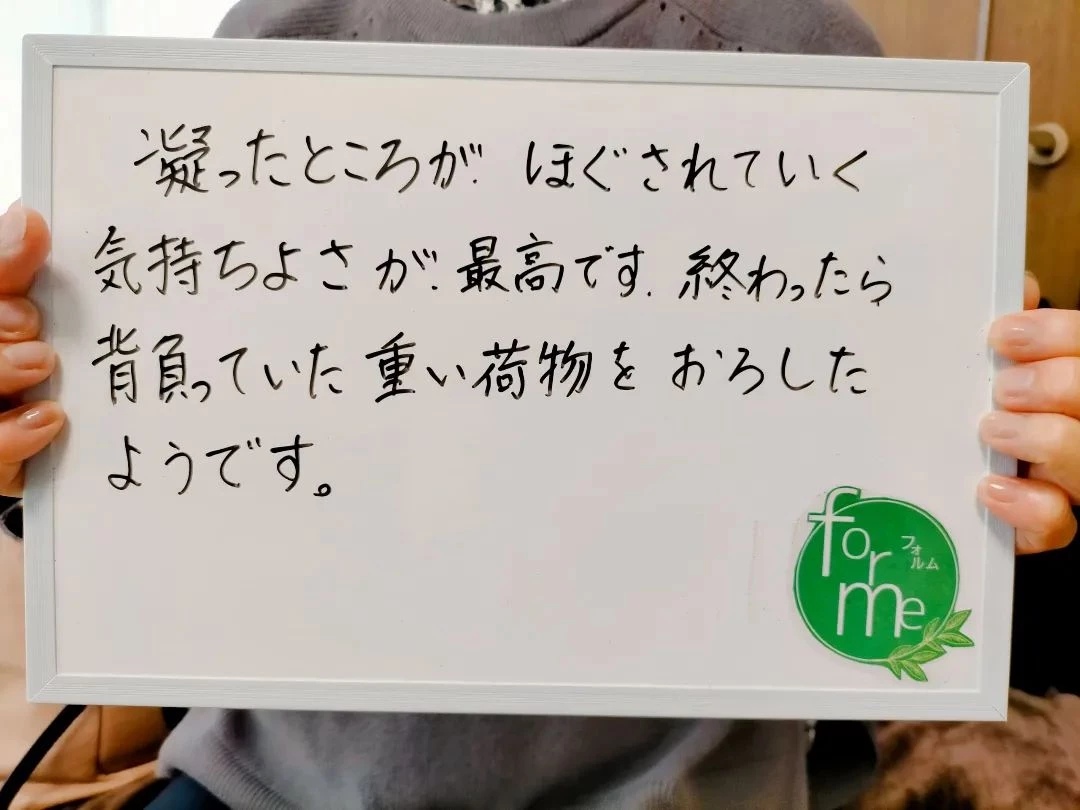 凝ったところが ほぐされていく
気持ちよさが 最高です. 終わったら
背負っていた 重い荷物を おろした
ようです。
for me
フォルム